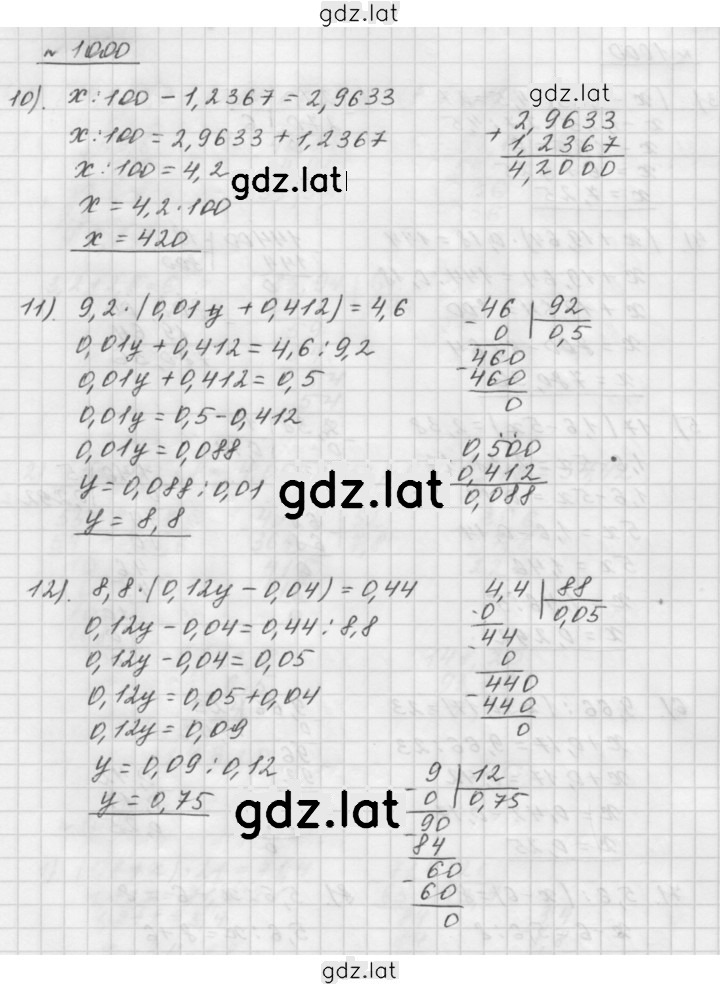 gdz.lat
№ 1000
10). x:100 - 1,2367 = 2,9633
x:100 = 2,9633 + 1,2367
x:100 = 4,2
x = 4,2·100
x = 420
gdz.lat
+ 2,9633
1,2367
4,2000
gdz.lat
11). 9,2·(0,01y + 0,412) = 4,6
0,01y + 0,412 = 4,6:9,2
0,01y + 0,412 = 0,5
0,01y = 0,5 - 0,412
0,01y = 0,088
y = 0,088:0,01
y = 8,8
- 46 | 92
0 | 0,5
- 460
460
0
0,500
0,412
0,088
gdz.lat
12). 8,8·(0,12y - 0,04) = 0,44
0,12y - 0,04 = 0,44:8,8
0,12y - 0,04 = 0,05
0,12y = 0,05 + 0,04
0,12y = 0,09
y = 0,09:0,12
y = 0,75
4,4 | 88
0 | 0,05
44
0
- 440
440
0
gdz.lat
- 9 | 12
0 | 0,75
- 90
84
- 60
60
0
gdz.lat